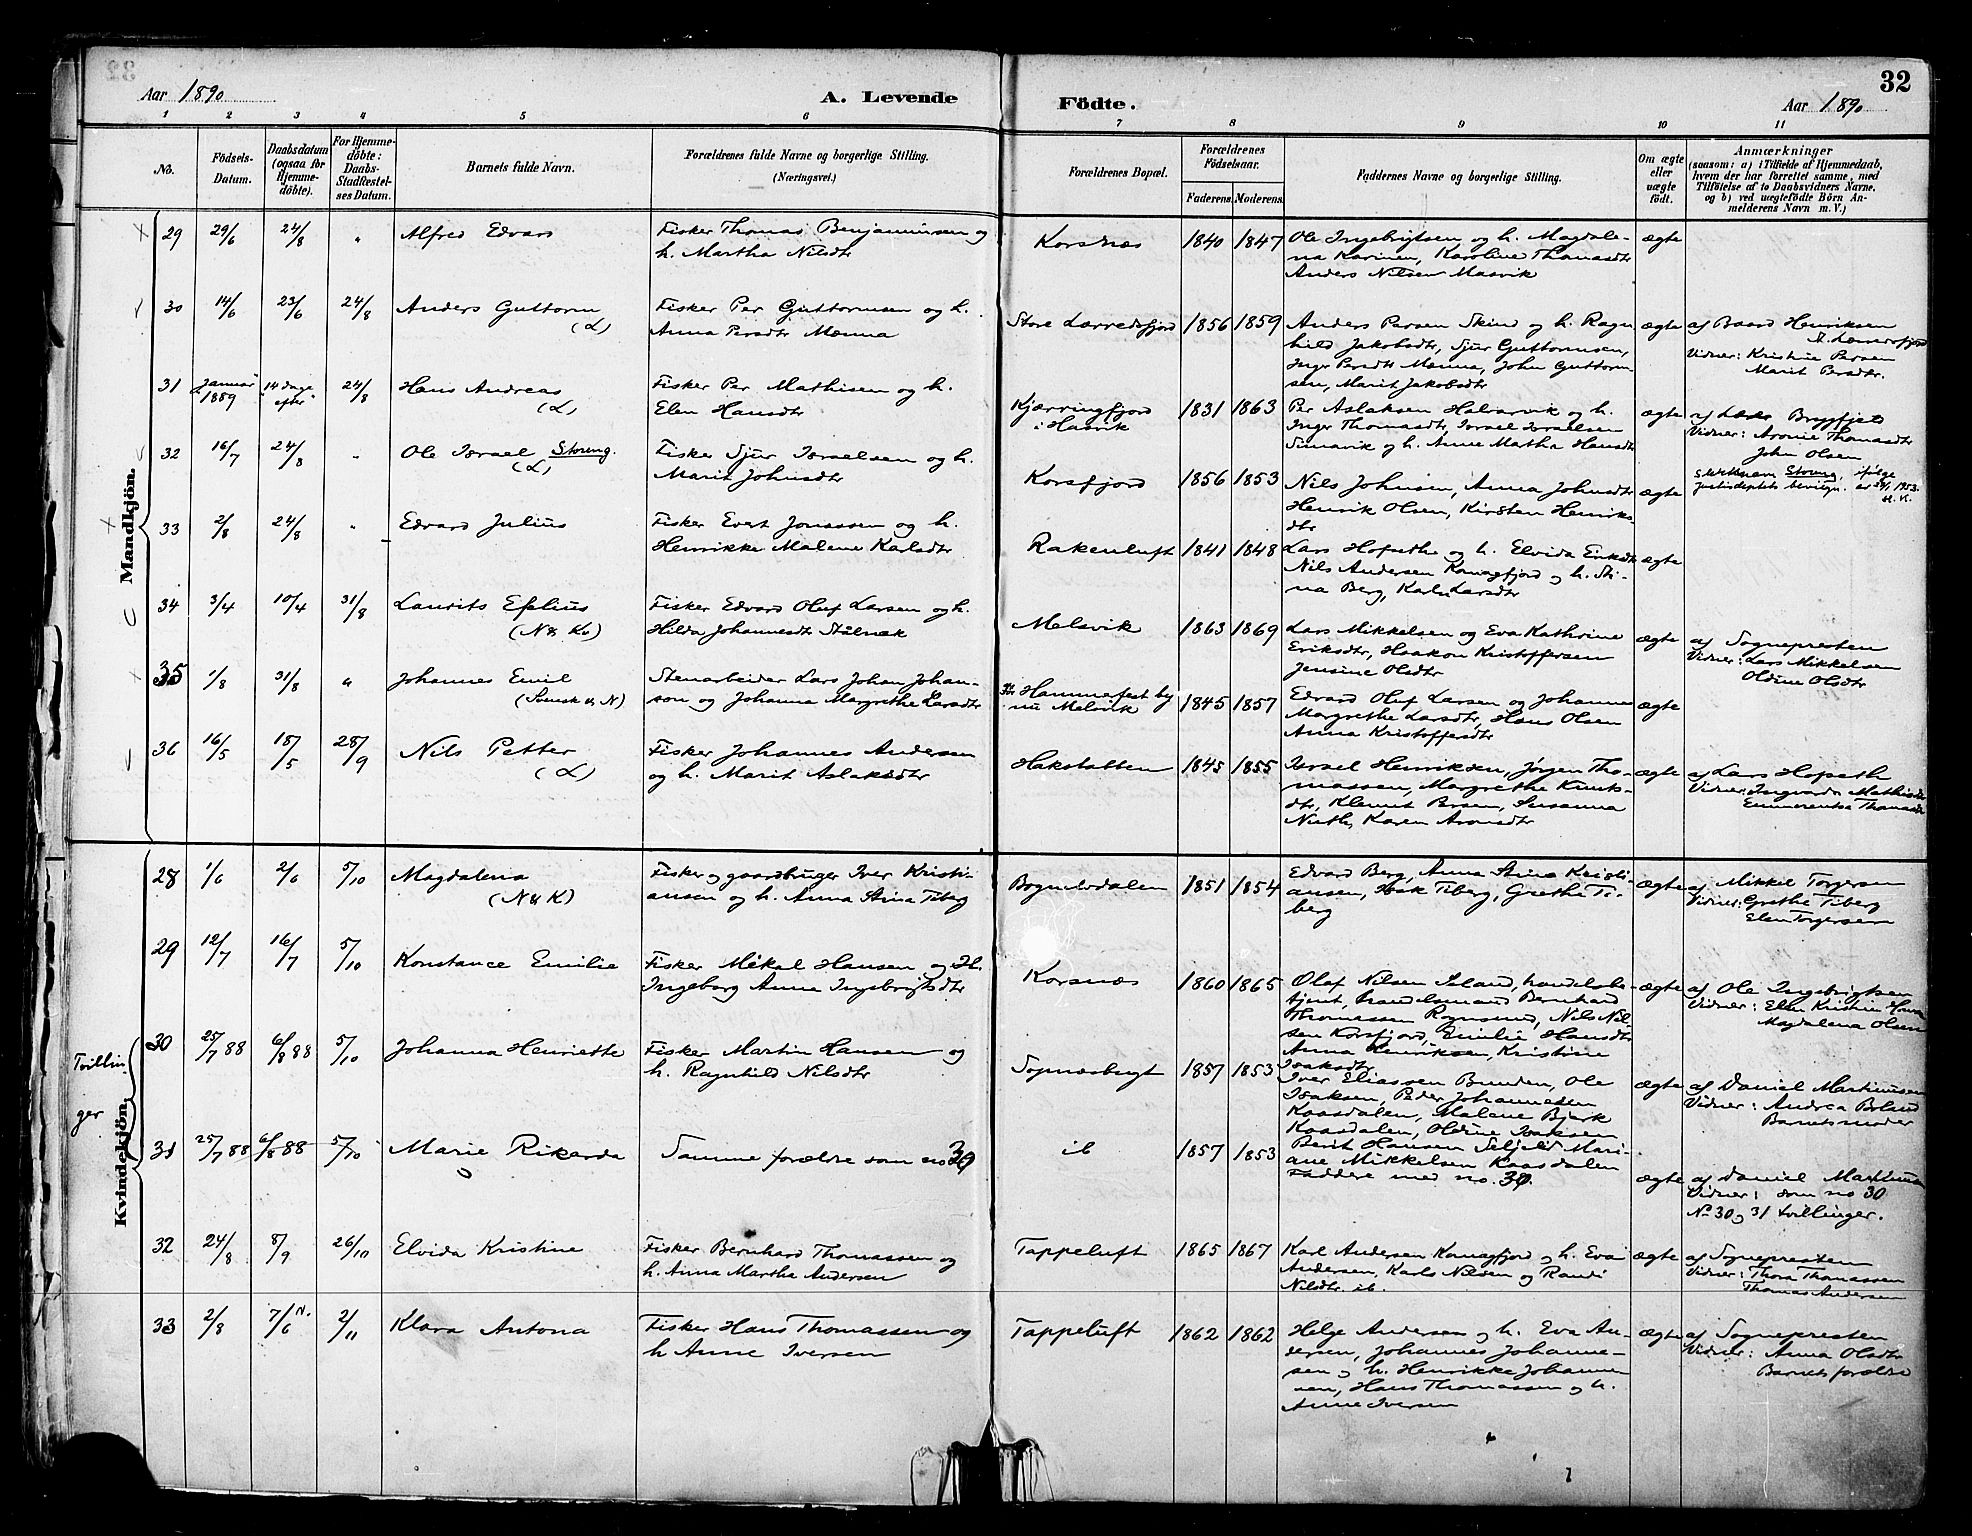 32
Aar 1890
A. Levende
Födte.
Aar 1890
1 2 3 4 5 6 7 8 9 10 11
No.
Födsels-
Datum.
Daabsdatum
(ogsaa for
Hjemme-
döbte).
For Hjemme-
döbte:
Daabs-
Stadfæstel-
ses Datum.
Barnets fulde Navn.
Forældrenes fulde Navne og borgerlige Stilling.
(Næringsvei.)
Forældrenes Bopæl.
Forældrenes
Födselsaar.
Faderens. Moderens.
Faddernes Navne og borgerlige Stilling.
Om ægte
eller
uægte
födt.
Anmærkninger
(saasom: a) i Tilfælde af Hjemmedaab,
hvem der har forrettet samme, med
Tilföielse af to Daabsvidners Navne.
og b) ved uægtefödte Börn An-
melderens Navn m. V.)
Mandkjön.
29 29/6 24/8 " Alfred Edvard
Fisker Thomas Benjaminsen og
h. Martha Nilsdtr
Korsnæs 1840 1847
Ole Ingebrigtsen og h. Magdale-
na Karinen, Karoline Thomasdtr
Anders Nilsen Masvik
ægte
30 14/6 23/6 24/8 Anders Guttorm
(L)
Fisker Per Guttormsen og h.
Anna Persdtr Mænna
Store Lærredsfjord 1856 1859
Anders Persen Skind og h. Ragn
hild Jakobsdtr, Sjur Guttormsen,
Inger Persdtr Mænna, John Guttorm
sen, Marit Jakobsdtr
ægte
af Baard Henriksen
Vidner: Kristine Persen
Marit Persdtr.
31 Januar 1889 14 dage efter 24/8 Hans Andreas
(L)
Fisker Per Mathisen og h.
Elen Hansdtr
Kjærringfjord
i Hasvik 1831 1863
Per Aslaksen Halvarvik og h.
Inger Thomasdtr, Israel Israelsen
Simavik og h. Anne Martha Hansdtr
ægte
af Lars Bryggfjeld
Vidner: Aronie Thomasdtr
John Olsen
32 16/7 24/8 " Ole Israel Storeng.
(L)
Fisker Sjur Israelsen og h.
Marit Johnsdtr
Korsfjord 1856 1853
Nils Johnsen, Anna Johnsdtr
Henrik Olsen, Kirsten Henriks-
dtr
ægte
Slektsnavn Storeng, ifølge
justisdeptets bevilgn. av 1953.
33 2/8 24/8 " Edvard Julius
Fisker Evert Jonassen og h.
Henrikke Malene Karlsdtr
Rakenluft 1841 1848
Lars Hofseth og h. Elvida Eriksdtr
Nils Andersen Komagfjord og h. Sti-
na Berg, Karl Larsdtr
ægte
34 3/4 10/4 31/8 Laurits Efelius
(N & Kv)
Fisker Edvard Oluf Larsen og h.
Hilda Johannesdtr Stålnæk
Melsvik 1863 1869
Lars Mikkelsen og Eva Kathrine
Eriksdtr, Haakon Kristoffersen
Jensine Olsdtr
ægte
af Sognepresten
Vidner: Lars Mikkelsen
Oldine Olsdtr
35 1/8 31/8 " Johannes Emil
(Svensk & N)
Stenarbeider Lars Johan Johan-
son og Johanna Margrethe Larsdtr
Hammerfest by
nu Melsvik 1845 1857
Edvard Oluf Larsen og Johanna
Margrethe Larsdtr, Hans Olsen
Anna Kristoffersdtr
ægte
36 16/5 18/5 28/9 Nils Petter
(L)
Fisker Johannes Andersen
og h. Marit Aslaksdtr
Hakstabben 1845 1855
Israel Henriksen, Jørgen Tho-
massen, Margrethe Knuts-
dtr, Klemet Persen, Susanna
Nuth, Karen Aronsdtr
ægte
af Lars Hofseth
Vidner: Ingvarda Mathisdtr
Emmerentse Thomasdtr
Kvindekjön.
28 1/6 2/6 5/10 Magdalena
(N & K)
Fisker og gaardbruger Iver Kristi-
ansen og h. Anna Stina Tiberg
Bognelvdalen 1851 1854
Edvard Berg, Anna Stina Kristi-
ansen, Isak Tiberg, Grethe Ti-
berg
ægte
af Mikkel Torgersen
Vidner: Grethe Tiberg
Elen Torgersen
29 12/7 16/7 5/10 Konstance Emilie
Fisker Mikal Hansen og h.
Ingeborg Anna Ingebrigtsdtr
Korsnæs 1860 1865
Olaf Nilsen Island, handelsbe-
tjent, handelsmand Bernhard
Thomassen Rognsund, Nils Nil-
sen Korsfjord, Emilie Hansdtr
Anna Henriksen, Kristine
Isaksdtr
ægte
af Ole Ingebrigtsen
Vidner: Ellen Kristine Hansen
Magdalena Olsen
Tvillin-
ger
30 25/7 88 6/8 88 5/10 Johanna Henriette
Fisker Martin Hansen og
h. Ragnhild Nilsdtr
Sopnæsbugt 1857 1853
Iver Eliassen Bunden, Ole
Isaksen, Peder Johannesen
Kaasdalen, Malene Bjerk
Kaasdalen, Oldine Isaksen
Berit Hansen Seljelid Mari-
ane Mikkelsen Kaasdalen
ægte
af Daniel Martinusen
Vidner: Andrea
Barnets moder
31 25/7 88 6/8 88 5/10 Marie Rikarda
Samme forældre som no 30
ib 1857 1853
Faddere med no. 30.
ægte
af Daniel Martinusen
Vidner: som no 30
No 30 og 31 tvillinger.
32 24/8 8/9 26/10 Elvida Kristine
Fisker Bernhard Thomassen og
h. Anna Martha Andersen
Tappeluft 1865 1867
Karl Andersen Komagfjord og h. Eva
Andersen, Karls Nilsen og Randi
Nilsdtr ib.
ægte
af Sognepresten
Vidner: Thora Thomassen
Thomas Andersen
33 2/8 7/6 N. 2/11 Klara Antona
Fisker Hans Thomassen og
h Anne Iversen
Tappeluft 1862 1862
Helge Andersen og h. Eva An-
dersen, Johannes Johanne-
sen og h. Henrikke Johanne
sen, Hans Thomassen og h.
Anne Iversen
ægte
af Sognepresten
Vidner: Anna Olsdtr
Barnets forældre